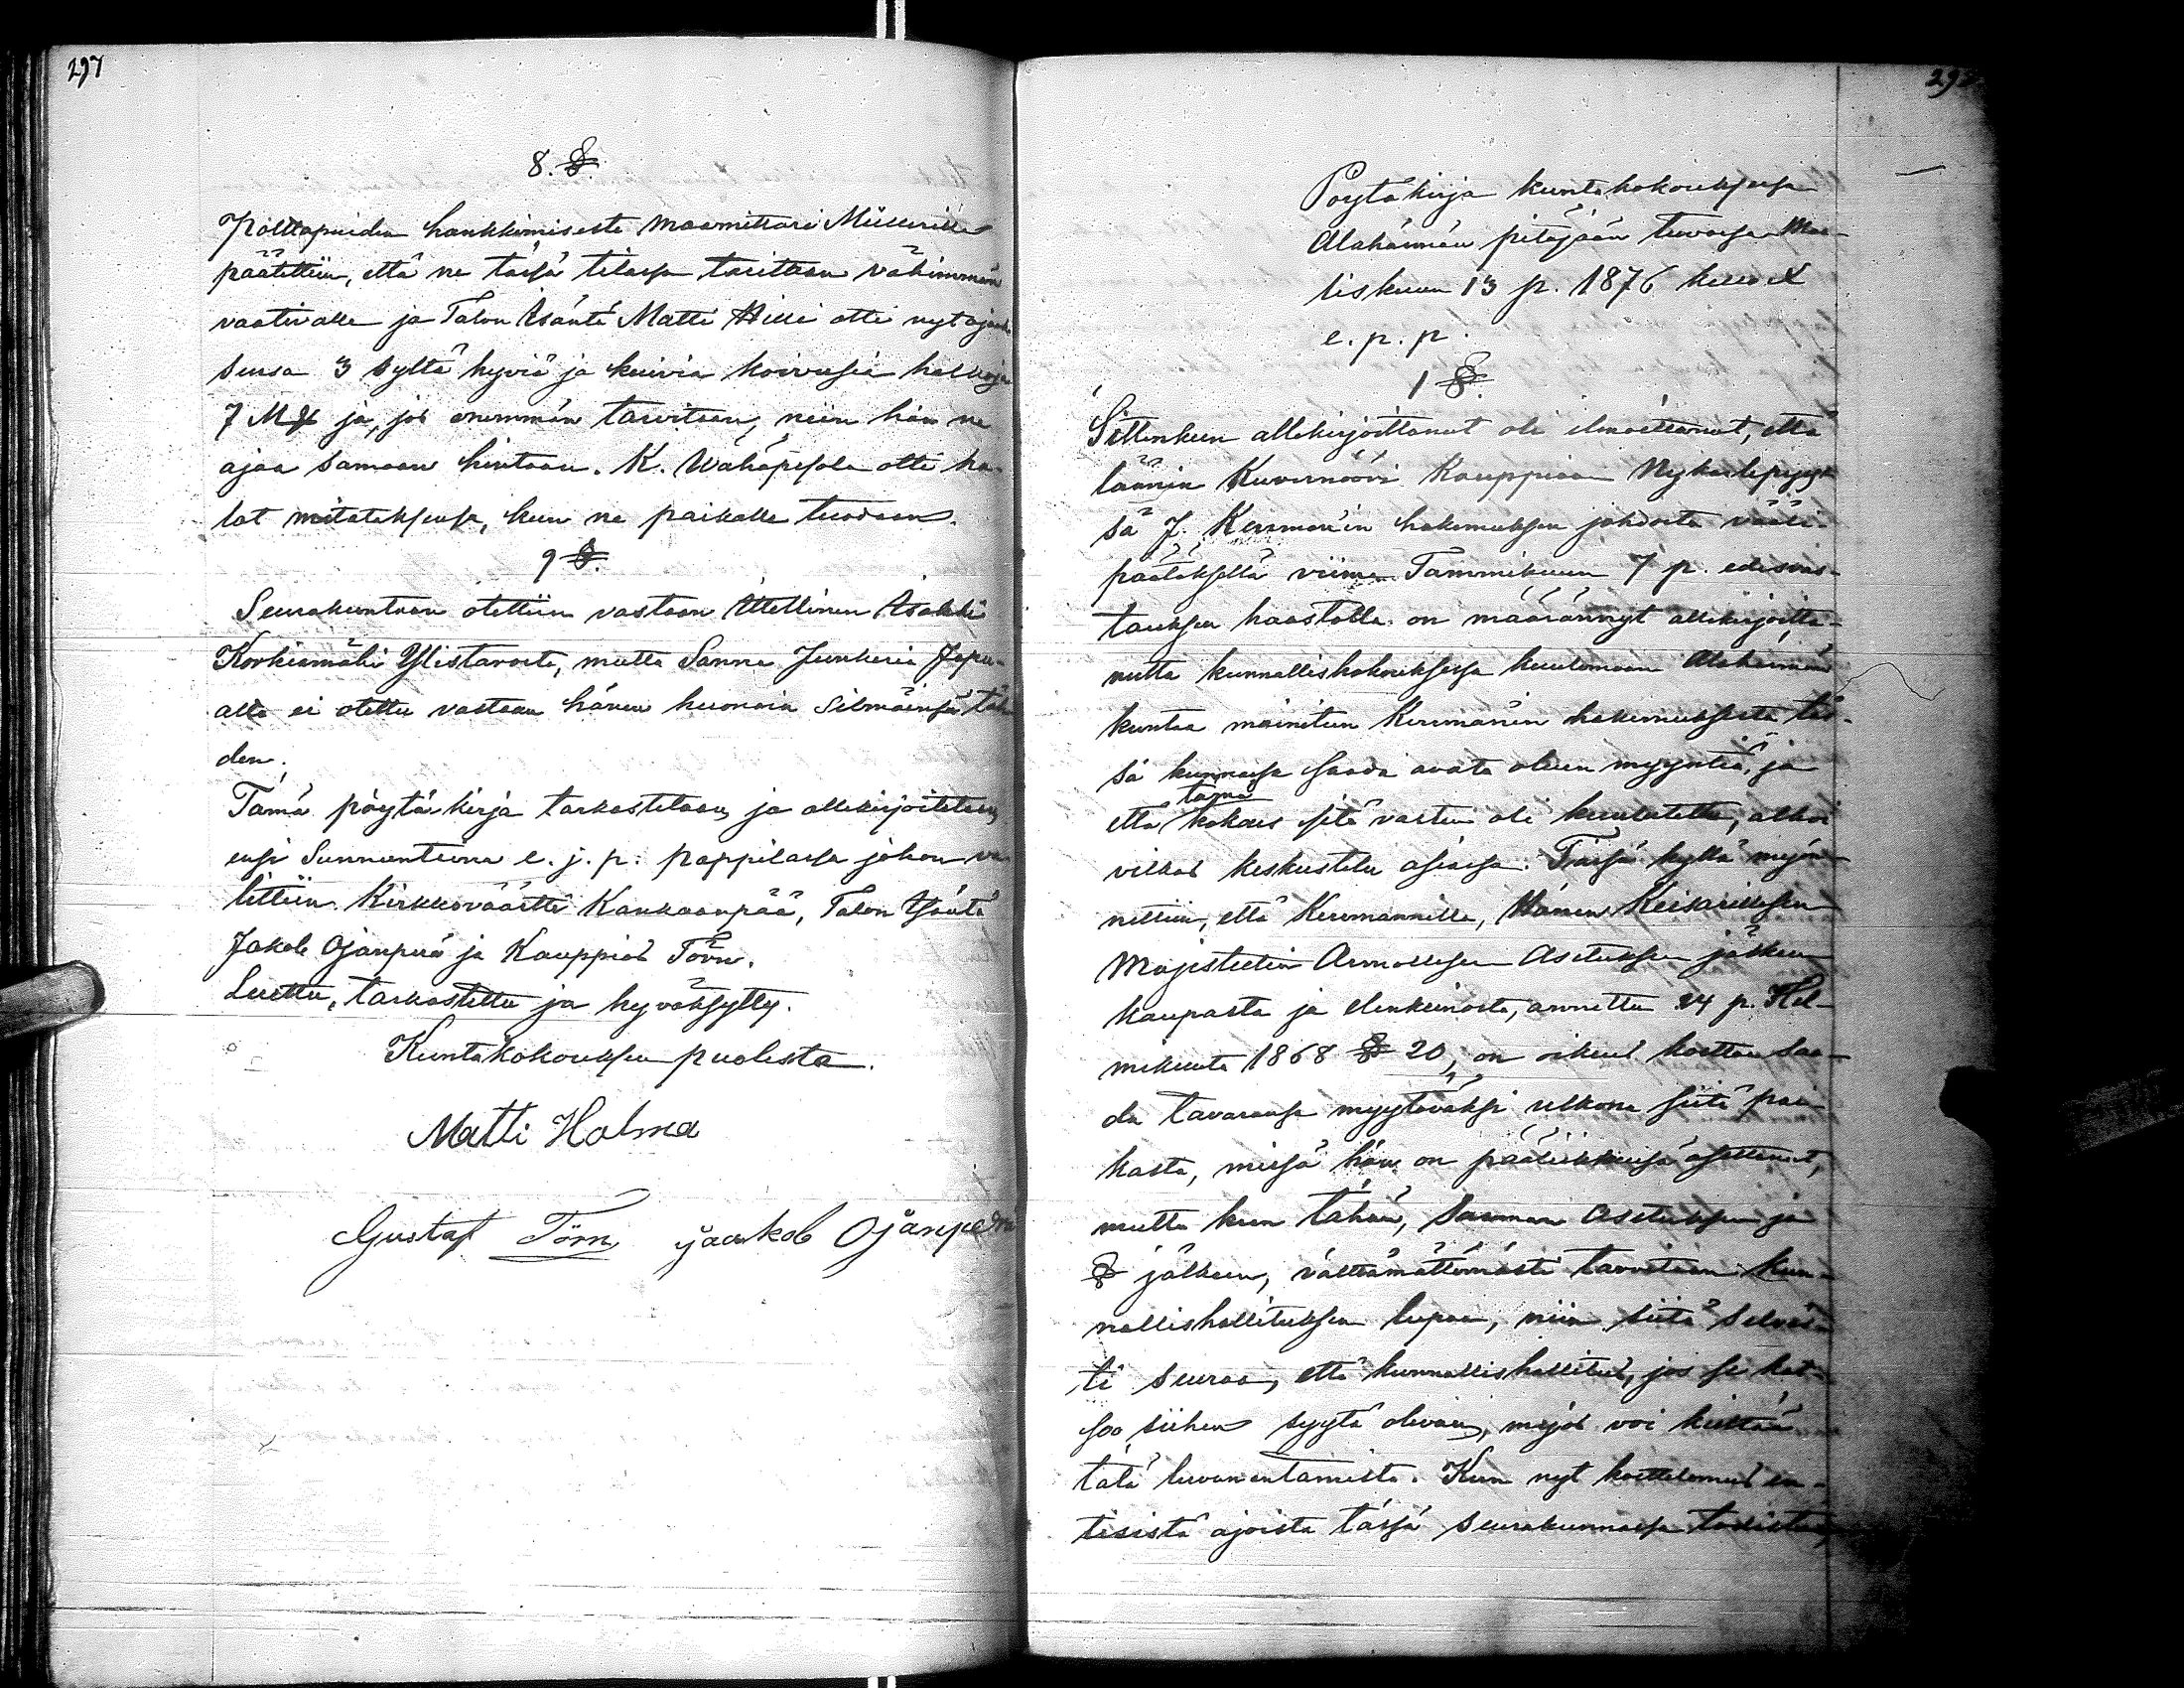 297
8. §.
Polttopuiden hankkimisesta Maamittari Müllerille
päätettiin, että ne tässä tilassa tarittaan vähimmän
vaativalle ja Talon Isäntä Matti Hilli otti nyt ajaak-
sensa 3 syltä hyviä ja kuivia koivusia halkoja
7 Mk ja, jos enemmän tarvitaan, niin hän ne
ajaa samaan hintaan. K. Wähäpesola otti ha-
lot mitataksensa, kun ne paikalle tuodaan.
9 §.
Seurakuntaan otettiin vastaan Itsellinen Isakki
Korkiamäki Ylistarosta, mutta Sanna Junkeria Jepu-
alta ei otettu vastaan hänen huonoin silmäinsä täh-
den.
Tämä pöytäkirja tarkastetaan ja allekirjoitetaan
ensi Sunnuntaina e. j. p. pappilassa johon va-
littiin Kirkkoväärtti Kankaanpää, Talon Isäntä
Jakob Ojanperä ja Kauppias Törn.
Luettu, tarkastettu ja hyväksytty.
Kuntakokouksen puolesta.
Matti Holma
Gustaf Törn Jaakob Ojanperä
Pöytäkirja kuntakokouksessa
Alahärmän pitäjään tuvassa Maa-
liskuun 13 p. 1876 kello X
e. p. p.
1 §.
Sittenkun allekirjoittanut oli ilmoittanut, että
läänin Kuvernööri Kauppiaan Nykarlepyys-
sä J. Kerrman'in hakemuksen johdosta väli-
päätöksellä viime Tammikuun 7 p. edesvas-
tauksen haastolla on määrännyt allekirjoitta-
nutta kunnalliskokouksessa kuulemaan Alahärmän
kuntaa mainitun Kerrmanin hakemuksesta täs-
sä kunnassa saada avata oluen myyntiä, ja
tämä
että kokous sitä varten oli kuulutettu, alkoi
vilkas keskustelu asiassa. Tässä kyllä myön-
nettiin, että Kerrmannilla, Hänen Keisarillisen
Majesteetin Armollisen Asetuksen jälkeen
kaupasta ja elinkeinosta, annettu 24 p. Hel-
mikuuta 1868 § 20, on oikeus koettaa saa-
da tavaransa myytäväksi ulkona siitä pai-
kasta, missä hän on pääliikkensä asettanut,
mutta kun tähän, Samman Asetuksen ja
§ jälkeen, välttämättömästi tarvitaan kun-
nallishallituksen lupaa, niin siitä selväs-
ti seuraa, että kunnallishallitus, jos se kat-
soo siihen syytä olevan, myös voi kieltää
tätä luvanantamista. Kun nyt koettelemus en-
tisistä ajoista tässä seurakunnassa todistaa,